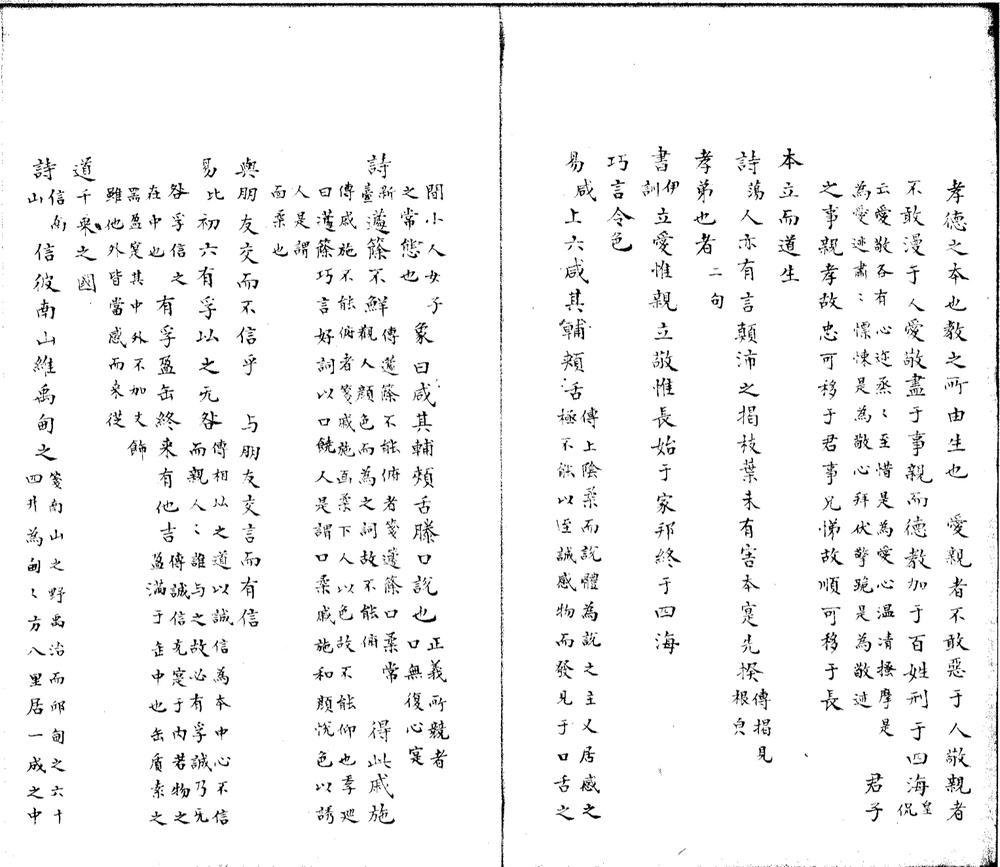 孝德之本也教之所由生也　愛親者不敢惡于人敬親者
不敢漫于人愛敬盡于事親而德教加于百姓刑于四海皇侃
云愛敬各有心迹烝〻至惜是為愛心温凊搔摩是
為愛迹肅〻慄悚是為敬心拜伏擎跪是為敬迹　君子
之事親孝故忠可移于君事兄悌故順可移于長
本立而道生
詩蕩人亦有言顛沛之揭枝葉未有害本寔先撥傳揭見
根皃
孝弟也者二句
書伊訓立愛惟親立敬惟長始于家邦終于四海
巧言令色
易咸上六咸其輔頰舌傳上陰柔而說體為說之主又居感之
極不能以至誠感物而發見于口舌之
間小人女子
之常態也　象曰咸其輔頰舌滕口說也正義所競者
口無復心寔
詩新臺籧篨不鮮傳籧篨不能俯者箋籧篨口柔常
觀人顏色而為之詞故不能俯　得此戚施
傳戚施不能俯者箋戚施面柔下人以色故不能仰也李廵
曰籧篨巧言好詞以口饒人是謂口柔戚施和顏悅色以誘
人是謂
面柔也
與朋友交而不信乎　与朋友交言而有信
易比初六有孚比之无咎傳相比之道以誠信為本中心不信
而親人〻誰与之故必有孚誠乃无
咎孚信之
在中也　有孚盈缶終来有他吉傳誠信充寔于内若物之
盈滿于缶中也缶質素之
噐盈寔其中外不加文飾
雖他外皆當感而来從
道千乘之國
詩信南山信彼南山維禹甸之箋南山之野禹治而邱甸之六十
四井為甸〻方八里居一成之中